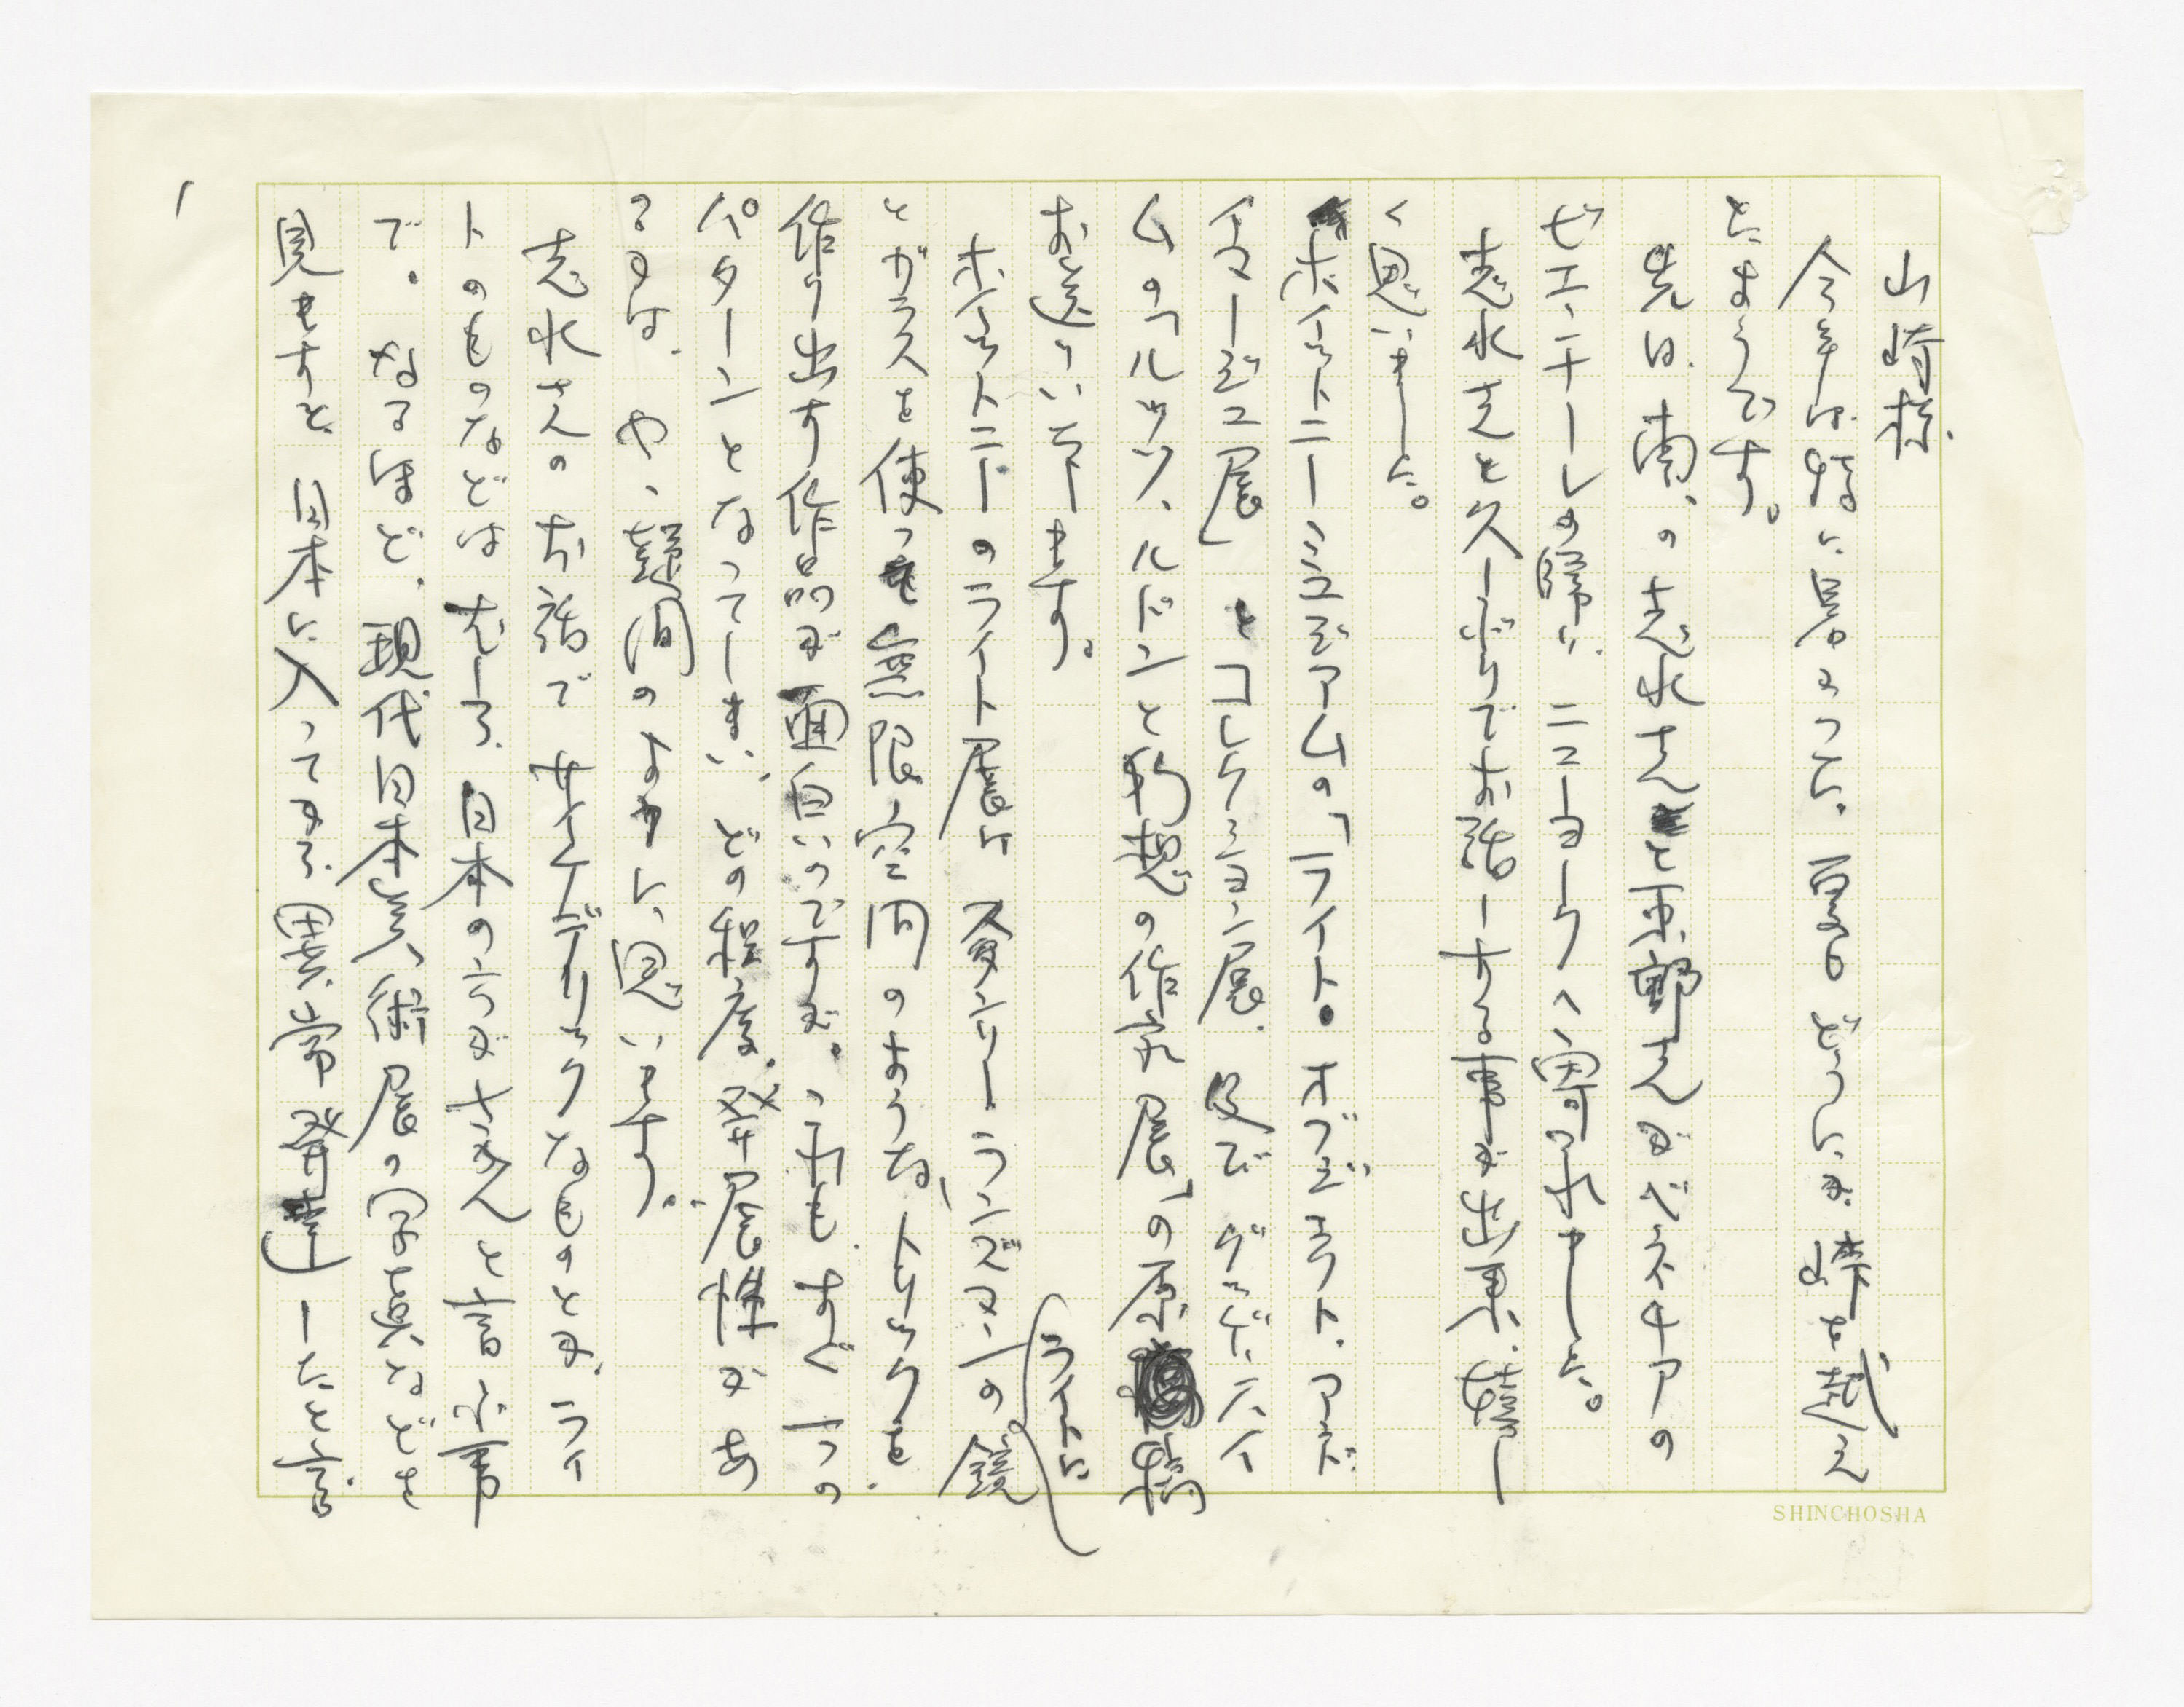 山崎様
今年は妙に暑かったり、夏もどうにか峠を越え
たようです。
先日、南の志水さんと海野さんがベネチアの
ビエンナーレの帰りに、ニューヨークへ寄りました。
志水さんと久しぶりでお話しする事が出来、嬉し
く思いました。
ホイットニーミュジアムの「ライト・オブジェクト・アンド
イマージュ展」とコレクション展、及びグッゲンハイ
ムの「ルソウ、ルドンと幻想の作家展」の原稿
お送りいたします。
ホイットニーのライト展は、スタンレーランズマンの鏡
とガラスを使った無限空間のようなトリックを
作り出す作品が面白いのですが、これも、すぐ一つの
パターンとなってしまい、どの程度、発展性があ
るのは、や、疑問のように思います。
志水さんのお話で、サイケデリックなものとか、ライ
トのものなどは、むしろ、日本の方がさかんと聞く事
で、なるほど、現代日本美術展の写真などを
見ますと、日本に入ってから、異常発達したと言
SHINCHOSHA